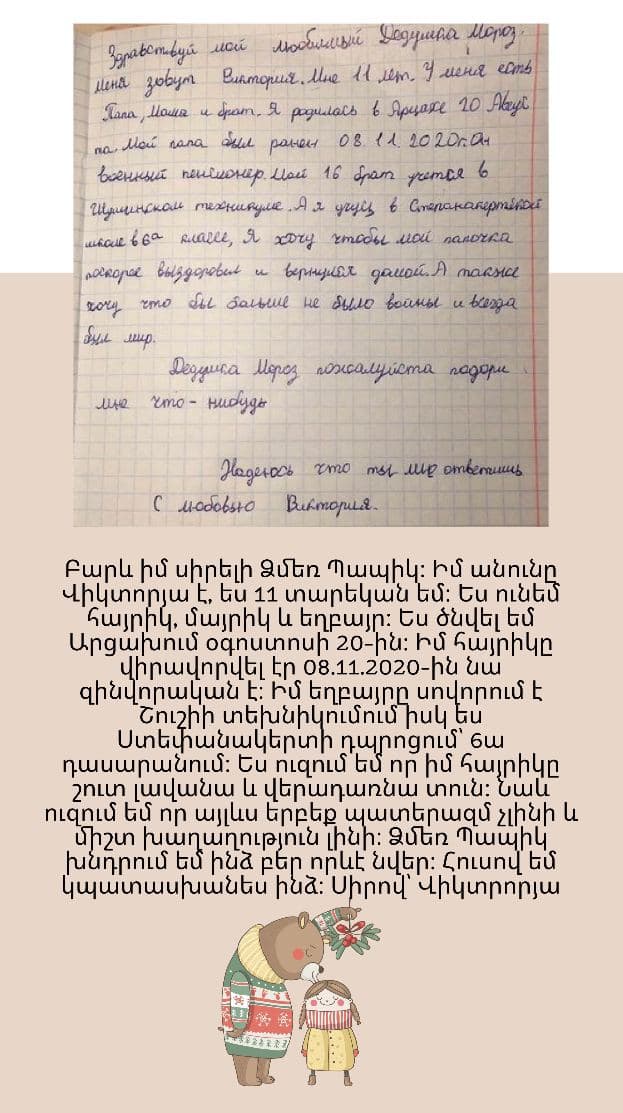 Здравствуй мой любимый Дедушка Мороз.
Меня зовут Виктория. Мне 11 лет. У меня есть
Папа, Мама и брат. Я родилась в Арцахе 20 Авгус
та. Мой папа был ранен 08.11.2020г. Он
военный пенсионер. Мой 16 брат учется в
Шушинском техникуме. А я учусь в Степанакертской
школе в 6а классе, Я хочу чтобы мой папочка
поскорее выздоровел и вернулся домой. А также
хочу что бы больше не было войны и всегда
был мир.
Дедушка Мороз пожалуйста подари
мне что-нибудь
Надеюсь что ты мне ответишь
С любовью Виктория.
Բարև իմ սիրելի Ձմեռ Պապիկ: Իմ անունը
Վիկտորյա է, ես 11 տարեկան եմ: Ես ունեմ
հայրիկ, մայրիկ և եղբայր: Ես ծնվել եմ
Արցախում օգոստոսի 20-ին: Իմ հայրիկը
վիրավորվել էր 08.11.2020-ին նա
զինվորական է: Իմ եղբայրը սովորում է
Շուշիի տեխնիկումում իսկ ես
Ստեփանակերտի դպրոցում՝ 6ա
դասարանում: Ես ուզում եմ որ իմ հայրիկը
շուտ լավանա և վերադառնա տուն: Նաև
ուզում եմ որ այլևս երբեք պատերազմ չլինի և
միշտ խաղաղություն լինի: Ձմեռ Պապիկ
խնդրում եմ ինձ բեր որևէ նվեր: Հուսով եմ
կպատասխանես ինձ: Սիրով՝ Վիկտրորյա